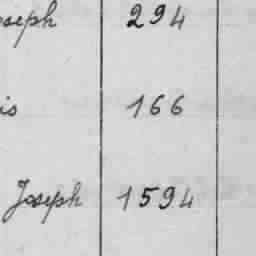 oseph 294
is 166
Joseph 1594